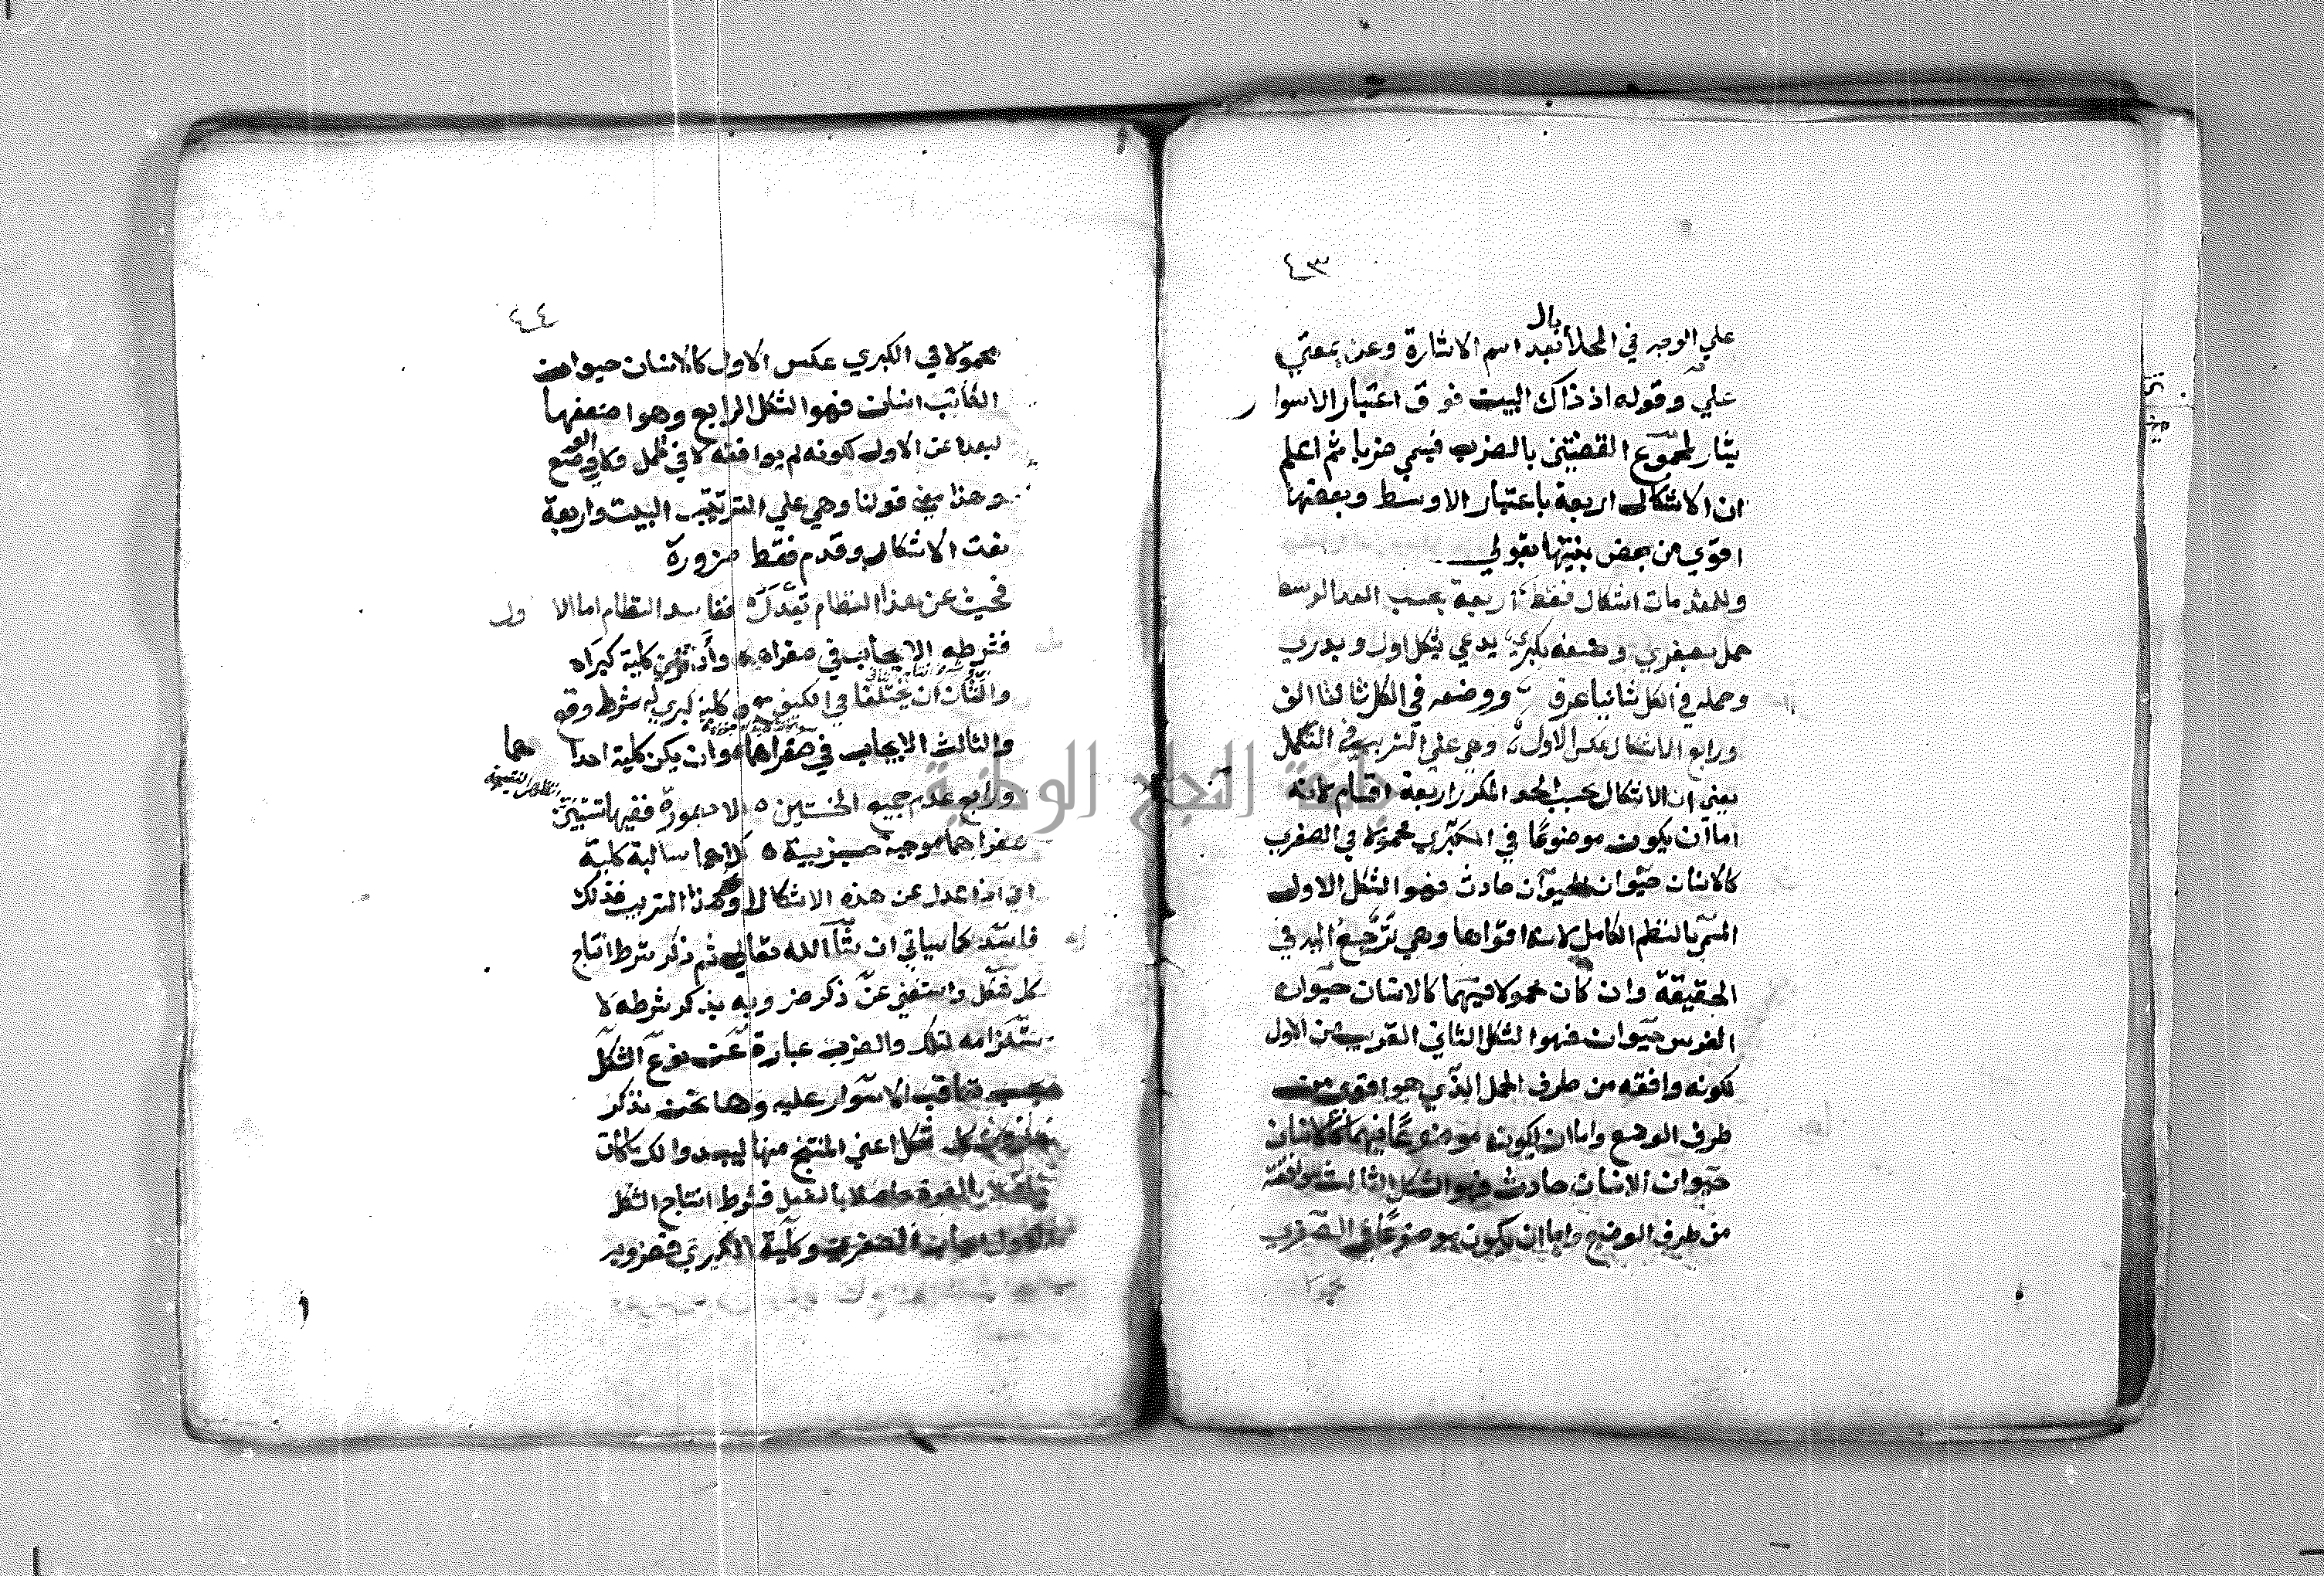 ٤٣
بال
علي الوجه في المحلأ بعد اسم الاشارة وعن بمعني
علي وقوله اذ ذاك البيت فوق اعتبار الاسوار
يشار لمجموع القضيتين بالضرب فيسمي ضربا ثم اعلم
ان الاشكال اربعة باعتبار الاوسط وبعضها
اقوي من بعض بنيتها بقولي
وللمقدمات اشكال فقط اربعة بحسب الحد الوسط
حمل بصغري وضعه بكبري يدعي بشكل اول ويدري
وحمله في الكل ثانيا عرف ووضعه في الكل ثالثا الف
ورابع الاشكال عكس الاول وهي علي الترتيب في التكمل
يعني ان الاشكال بحسب الحد المكرر اربعة اقسام لانه
اما ان يكون موضوعا في الكبري محمولا في الصغري
كالانسان حيوان الحيوان حادث فهو الشكل الاول
المسمي بالنظم الكامل لانه اقواها وهي ترجع اليه في
الحقيقة وان كان محمولا فيهما كالانسان حيوان
الفرس حيوان فهو الشكل الثاني القريب من الاول
لكونه وافقه من طرف الحمل الذي هو اقوي من
طرف الوضع واما ان يكون موضوعا فيهما كالانسان
حيوان الانسان حادث فهو الشكل الثالث لموافقته
من طرف الوضع واما ان يكون موضوعا في الصغري
٤٤
محمولا في الكبري عكس الاول كالانسان حيوان
الكاتب انسان فهو الشكل الرابع وهو اضعفها
لبعده عن الاول لكونه لم يوافقه لا في حمل ولا في وضع
وهذا معني قولنا وهي علي الترتيب البيت واربعة
نعت الاشكال وقدم فقط ضرورة
فحيث عن هذا النظام تعدل ففاسد النظام اما الاول
فشرطه الايجاب في صغراه وأن تري كلية كبراه
والثان ان يختلفا في الكيف مع كلية كبري له شرط وقع
والثالث الايجاب في صغراهما وان يكن كلية احداهما
ورابع عدم جميع الخستين الا بصورة ففيها تستبين
صغراهما موجبة جزيية كبراهما سالبة كلية
اي اذا عدل عن هذه الاشكال وهذا الترتيب فذلك
فاسد كما سياتي ان شآ الله تعالي ثم ذكر شرط انتاج
كل شكل واستغني عن ذكر ضروبه بذكر شرطه لا
ستلزامه لتلك والضرب عبارة عن نوع الشكل
بحسب تعاقب الاسوار عليه وها نحن نذكر
ضروب كل شكل اعني المنتج منها ليبدوا لك ما كان
بالقوة حاصلا بالفعل فشرط انتاج الشكل
الاول ايجاب الصغري وكلية الكبري فضروبه
جامعة النجاح الوطنية